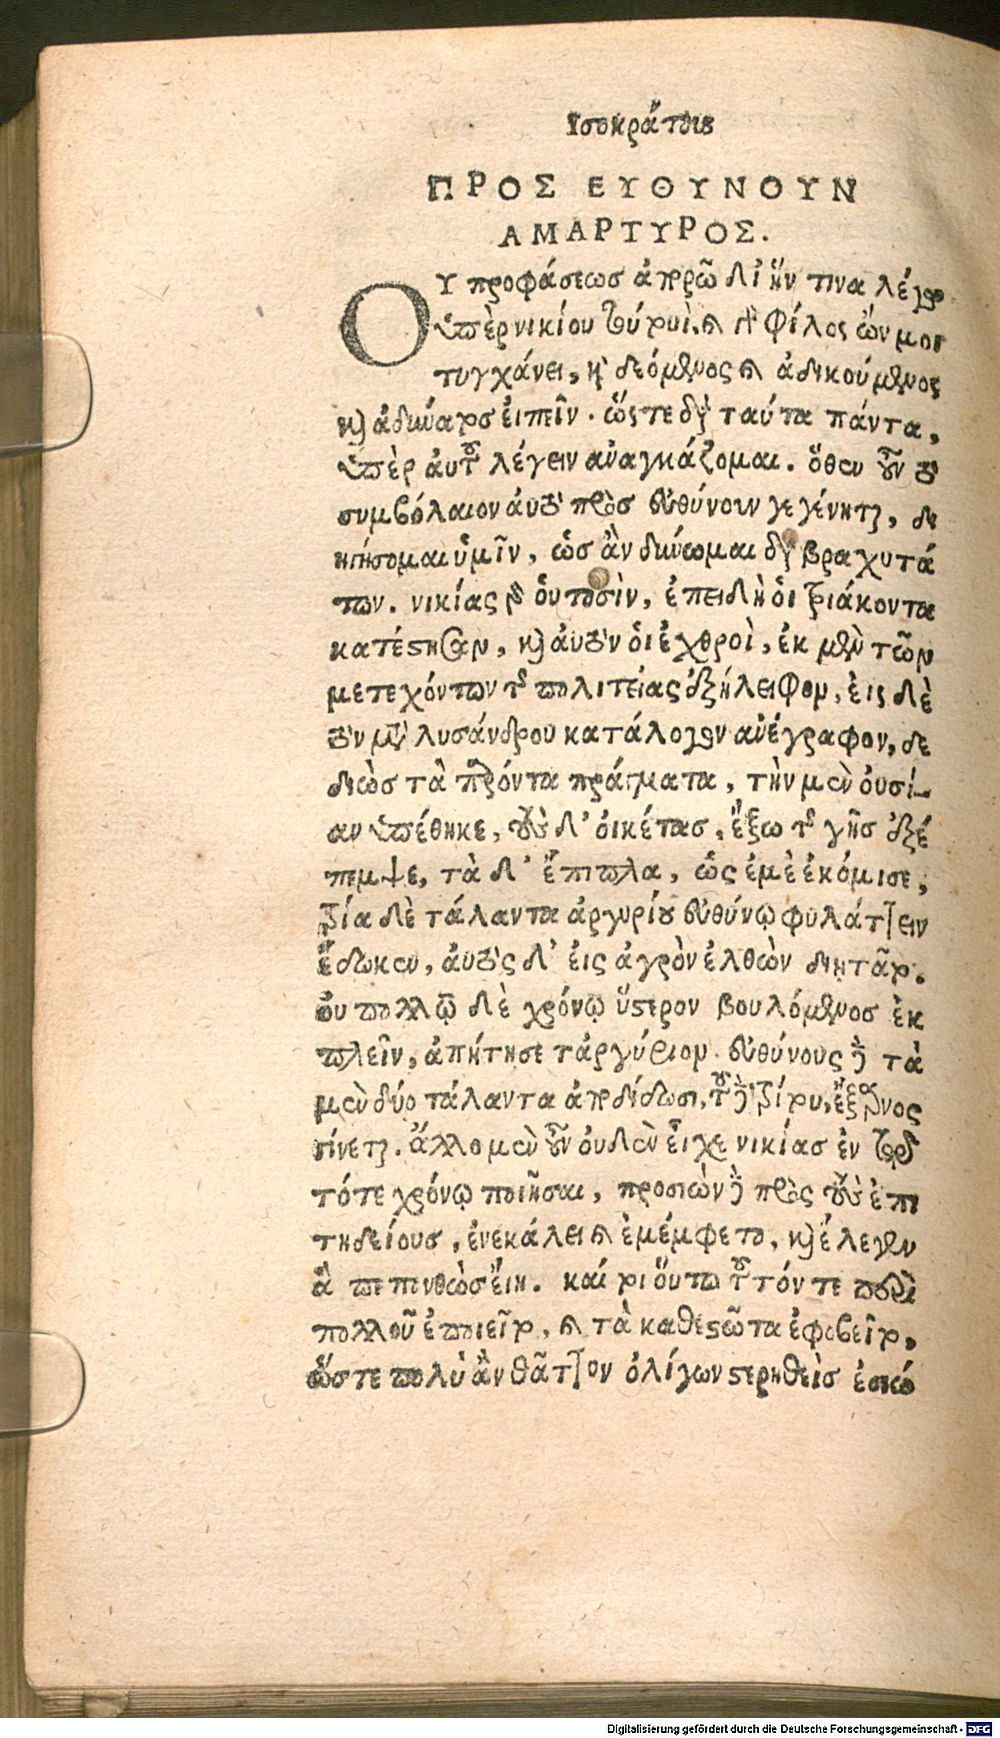 Ισοκράτους
ΠΡΟΣ ΕΥΘΥΝΟΥΝ
ΑΜΑΡΤΥΡΟΣ.
ΟΥ προφάσεως ἀπορῶ δι᾽ ἥν τινα λέγω
ὑπὲρ νικίου τουτουὶ, καὶ γὰρ φίλος ὤν μοι
τυγχάνει, καὶ δεόμενος καὶ ἀδικούμενος
καὶ ἀδύνατος εἰπεῖν. ὥςτε διὰ ταύτα πάντα,
ὑπὲρ αὐτοῦ λέγειν ἀναγκάζομαι. ὅθεν οὖν τὸ
συμβόλαιον αὐτῷ πρὸς εὐθύνουν γεγένηται, δι
ηγήσομαι ὑμῖν, ὡς ἂν δύνωμαι διὰ βραχυτά
των. νικίας γὰρ οὑτοσὶν, ἐπειδὴ ὁι τριάκοντα
κατέστησαν, καὶ αὐτὸν ὁι ἐχθροὶ, ἐκ μὲν τῶν
μετεχόντων τῆς πολιτείας ἐξήλειφον, εἰς δὲ
τὸν μετὰ λυσάνδρου κατάλογον ἀνέγραφον, δε
διὼς τὰ παρόντα πράγματα, τὴν μὲν οὐσί-
αν ὑπέθηκε, τοὺς δ᾽ οἰκέτας, ἔξω τῆς γῆς ἐξέ
πεμψε, τὰ δ᾽ ἔπιπλα, ὡς ἐμὲ ἐκόμισε,
τρία δὲ τάλαντα ἀργυρίου εὐθύνῳ φυλάττειν
ἔδωκεν, αὐτὸς δ᾽ εἰς ἀγρὸν ἐλθὼν διῃτᾶτο.
οὐ πολλῷ δὲ χρόνῳ ὕστερον βουλόμενος ἐκ
πλεῖν, ἀπῄτησε τἀργύριον. εὐθύνους δὲ τὰ
μὲν δύο τάλαντα ἀποδίδωσι, τοῦ δὲ τρίτου, ἔξαρνος
γίνεται. ἄλλο μὲν οὖν οὐδὲν εἶχε νικίας ἐν τῷ
τότε χρόνῳ ποιῆσαι, προσιὼν δὲ πρὸς τοὺς ἐπι
τηδείους, ἐνεκάλει καὶ ἐμέμφετο, καὶ ἔλεγεν
ἃ πεπονθὼς εἴη. καί τοι ὅυτω τοῦτόν τε περὶ
πολλοῦ ἐποιεῖτο, καὶ τὰ καθεστῶτα ἐφοβεῖτο,
ὥστε πολὺ ἂν θᾶττον ὀλίγων στερηθεὶς ἐσιώ
Digitalisierung gefördert durch die Deutsche Forschungsgemeinschaft - DFG